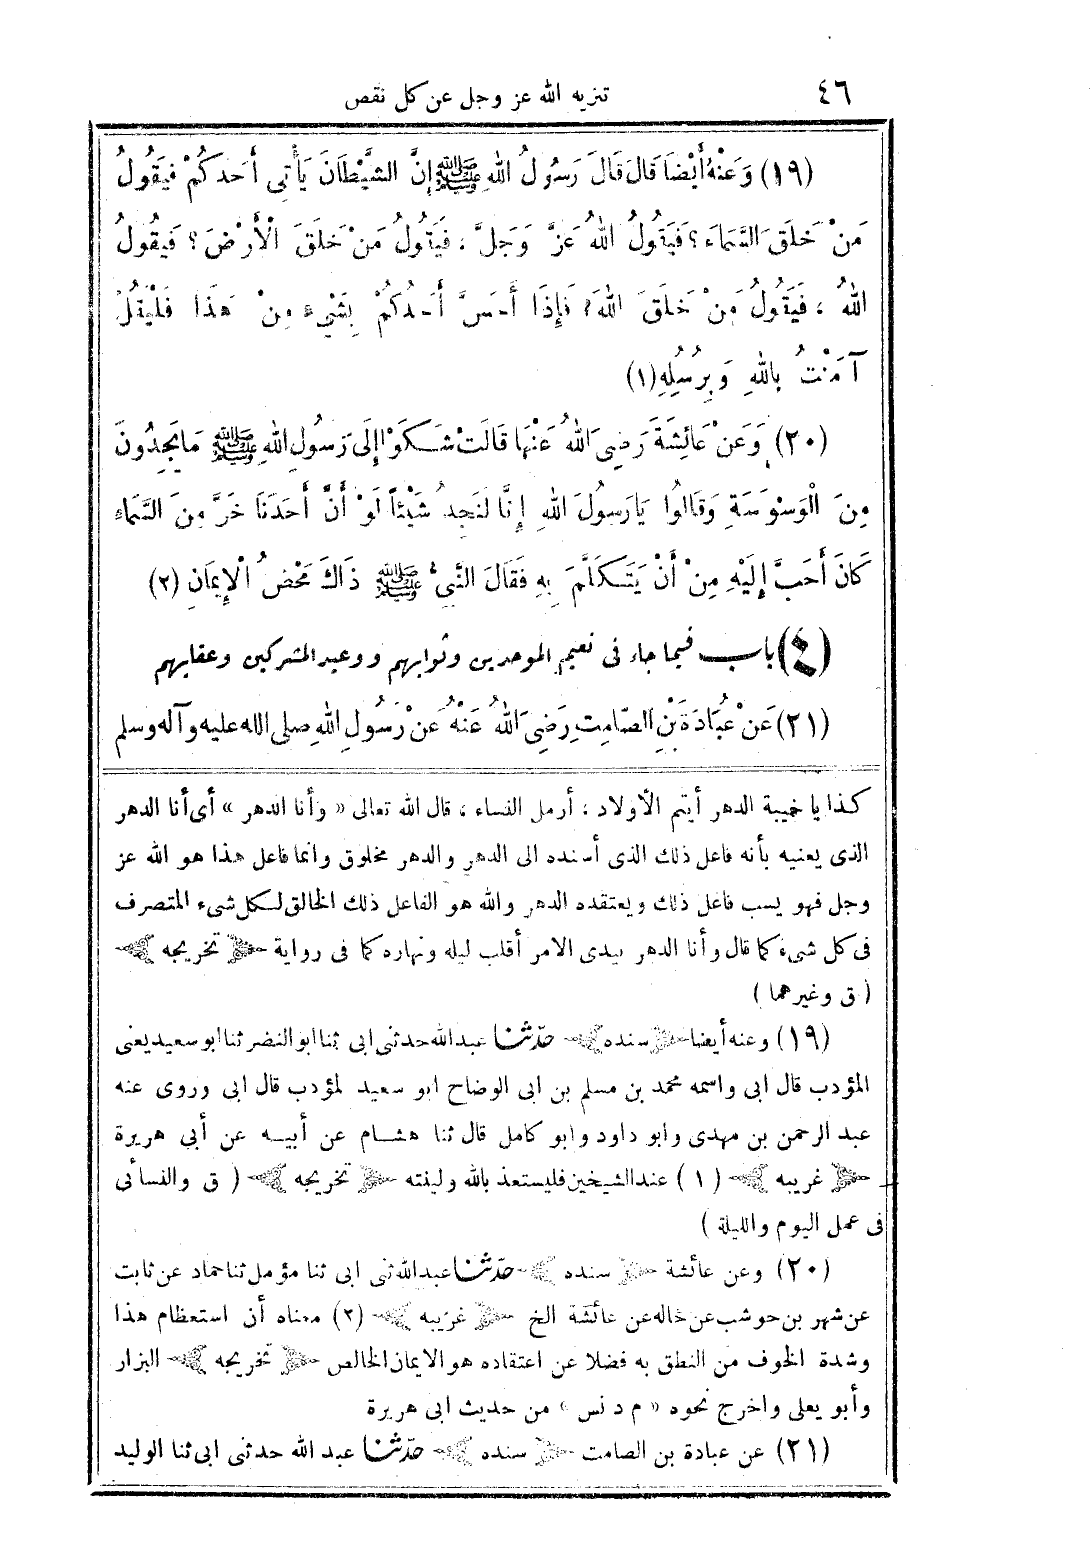 ٤٦ تنزيه الله عز وجل عن كل نقص
(١٩) وَعَنْهُ أَيْضَا قَالَ قَالَ رَسُولُ اللهِ ﷺ إِنَّ الشَّيْطَانَ يَأْتِي أَحَدَكُمْ فَيَقُولُ
مَنْ خَلَقَ السَّمَاءَ؟ فَيَقُولُ اللهُ عَزَّ وَجَلَّ ، فَيَقُولُ مَنْ خَلَقَ الْأَرْضَ؟ فَيَقُولُ
اللهُ ، فَيَقُولُ مَنْ خَلَقَ اللهَ؟ فَإِذَا أَحَسَّ أَحَدُكُمْ بِشَيْءٍ مِنْ هَذَا فَلْيَقُلْ
آمَنْتُ بِاللهِ وَبِرُسُلِهِ (١)
(٢٠) وَعَنْ عَائِشَةَ رَضِيَ اللهُ عَنْهَا قَالَتْ شَكَوْا إِلَى رَسُولِ اللهِ ﷺ مَا يَجِدُونَ
مِنَ الْوَسْوَسَةِ وَقَالُوا يَا رَسُولَ اللهِ إِنَّا لَنَجِدُ شَيْئًا لَوْ أَنَّ أَحَدَنَا خَرَّ مِنَ السَّمَاءِ
كَانَ أَحَبَّ إِلَيْهِ مِنْ أَنْ يَتَكَلَّمَ بِهِ فَقَالَ النَّبِيُّ ﷺ ذَاكَ مَحْضُ الْإِيمَانِ (٢)
(٤) باب فيما جاء فى نعيم الموحدين وثوابهم ووعيد المشركين وعقابهم
(٢١) عَنْ عُبَادَةَ بْنِ الصَّامِتِ رَضِيَ اللهُ عَنْهُ عَنْ رَسُولِ اللهِ صلى الله عليه وآله وسلم
كذا يا خيبة الدهر أيتم الأولاد ، أرمل النساء ، قال الله تعالى « وأنا الدهر » أى أنا الدهر
الذى يعنيه بأنه فاعل ذلك الذى أسنده الى الدهر والدهر مخلوق وانما فاعل هذا هو الله عز
وجل فهو يسب فاعل ذلك ويعتقده الدهر والله هو الفاعل ذلك الخالق لكل شىء المتصرف
فى كل شىء كما قال وأنا الدهر بيدى الامر أقلب ليله ونهاره كما فى رواية ﴿تخريجه﴾
( ق وغيرهما )
(١٩) وعنه أيضا ﴿سنده﴾ حدّثنا عبد الله حدثنى ابى ثنا ابو النضر ثنا ابو سعيد يعنى
المؤدب قال ابى واسمه محمد بن مسلم بن ابى الوضاح ابو سعيد لمؤدب قال ابى وروى عنه
عبد الرحمن بن مهدى وابو داود وابو كامل قال ثنا هشام عن أبيه عن أبي هريرة
﴿غريبه﴾ (١) عند الشيخين فليستعذ بالله ولينته ﴿تخريجه﴾ ( ق والنسائى
فى عمل اليوم والليلة )
(٢٠) وعن عائشة ﴿سنده﴾ حدّثنا عبد الله ثنى ابى ثنا مؤمل ثنا حماد عن ثابت
عن شهر بن حوشب عن خاله عن عائشة الخ ﴿غريبه﴾ (٢) معناه أن استعظام هذا
وشدة الخوف من النطق به فضلا عن اعتقاده هو الايمان الخالص ﴿تخريجه﴾ البزار
وأبو يعلى واخرج نحوه « م د نس » من حديث ابى هريرة
(٢١) عن عبادة بن الصامت ﴿سنده﴾ حدّثنا عبد الله حدثنى ابى ثنا الوليد